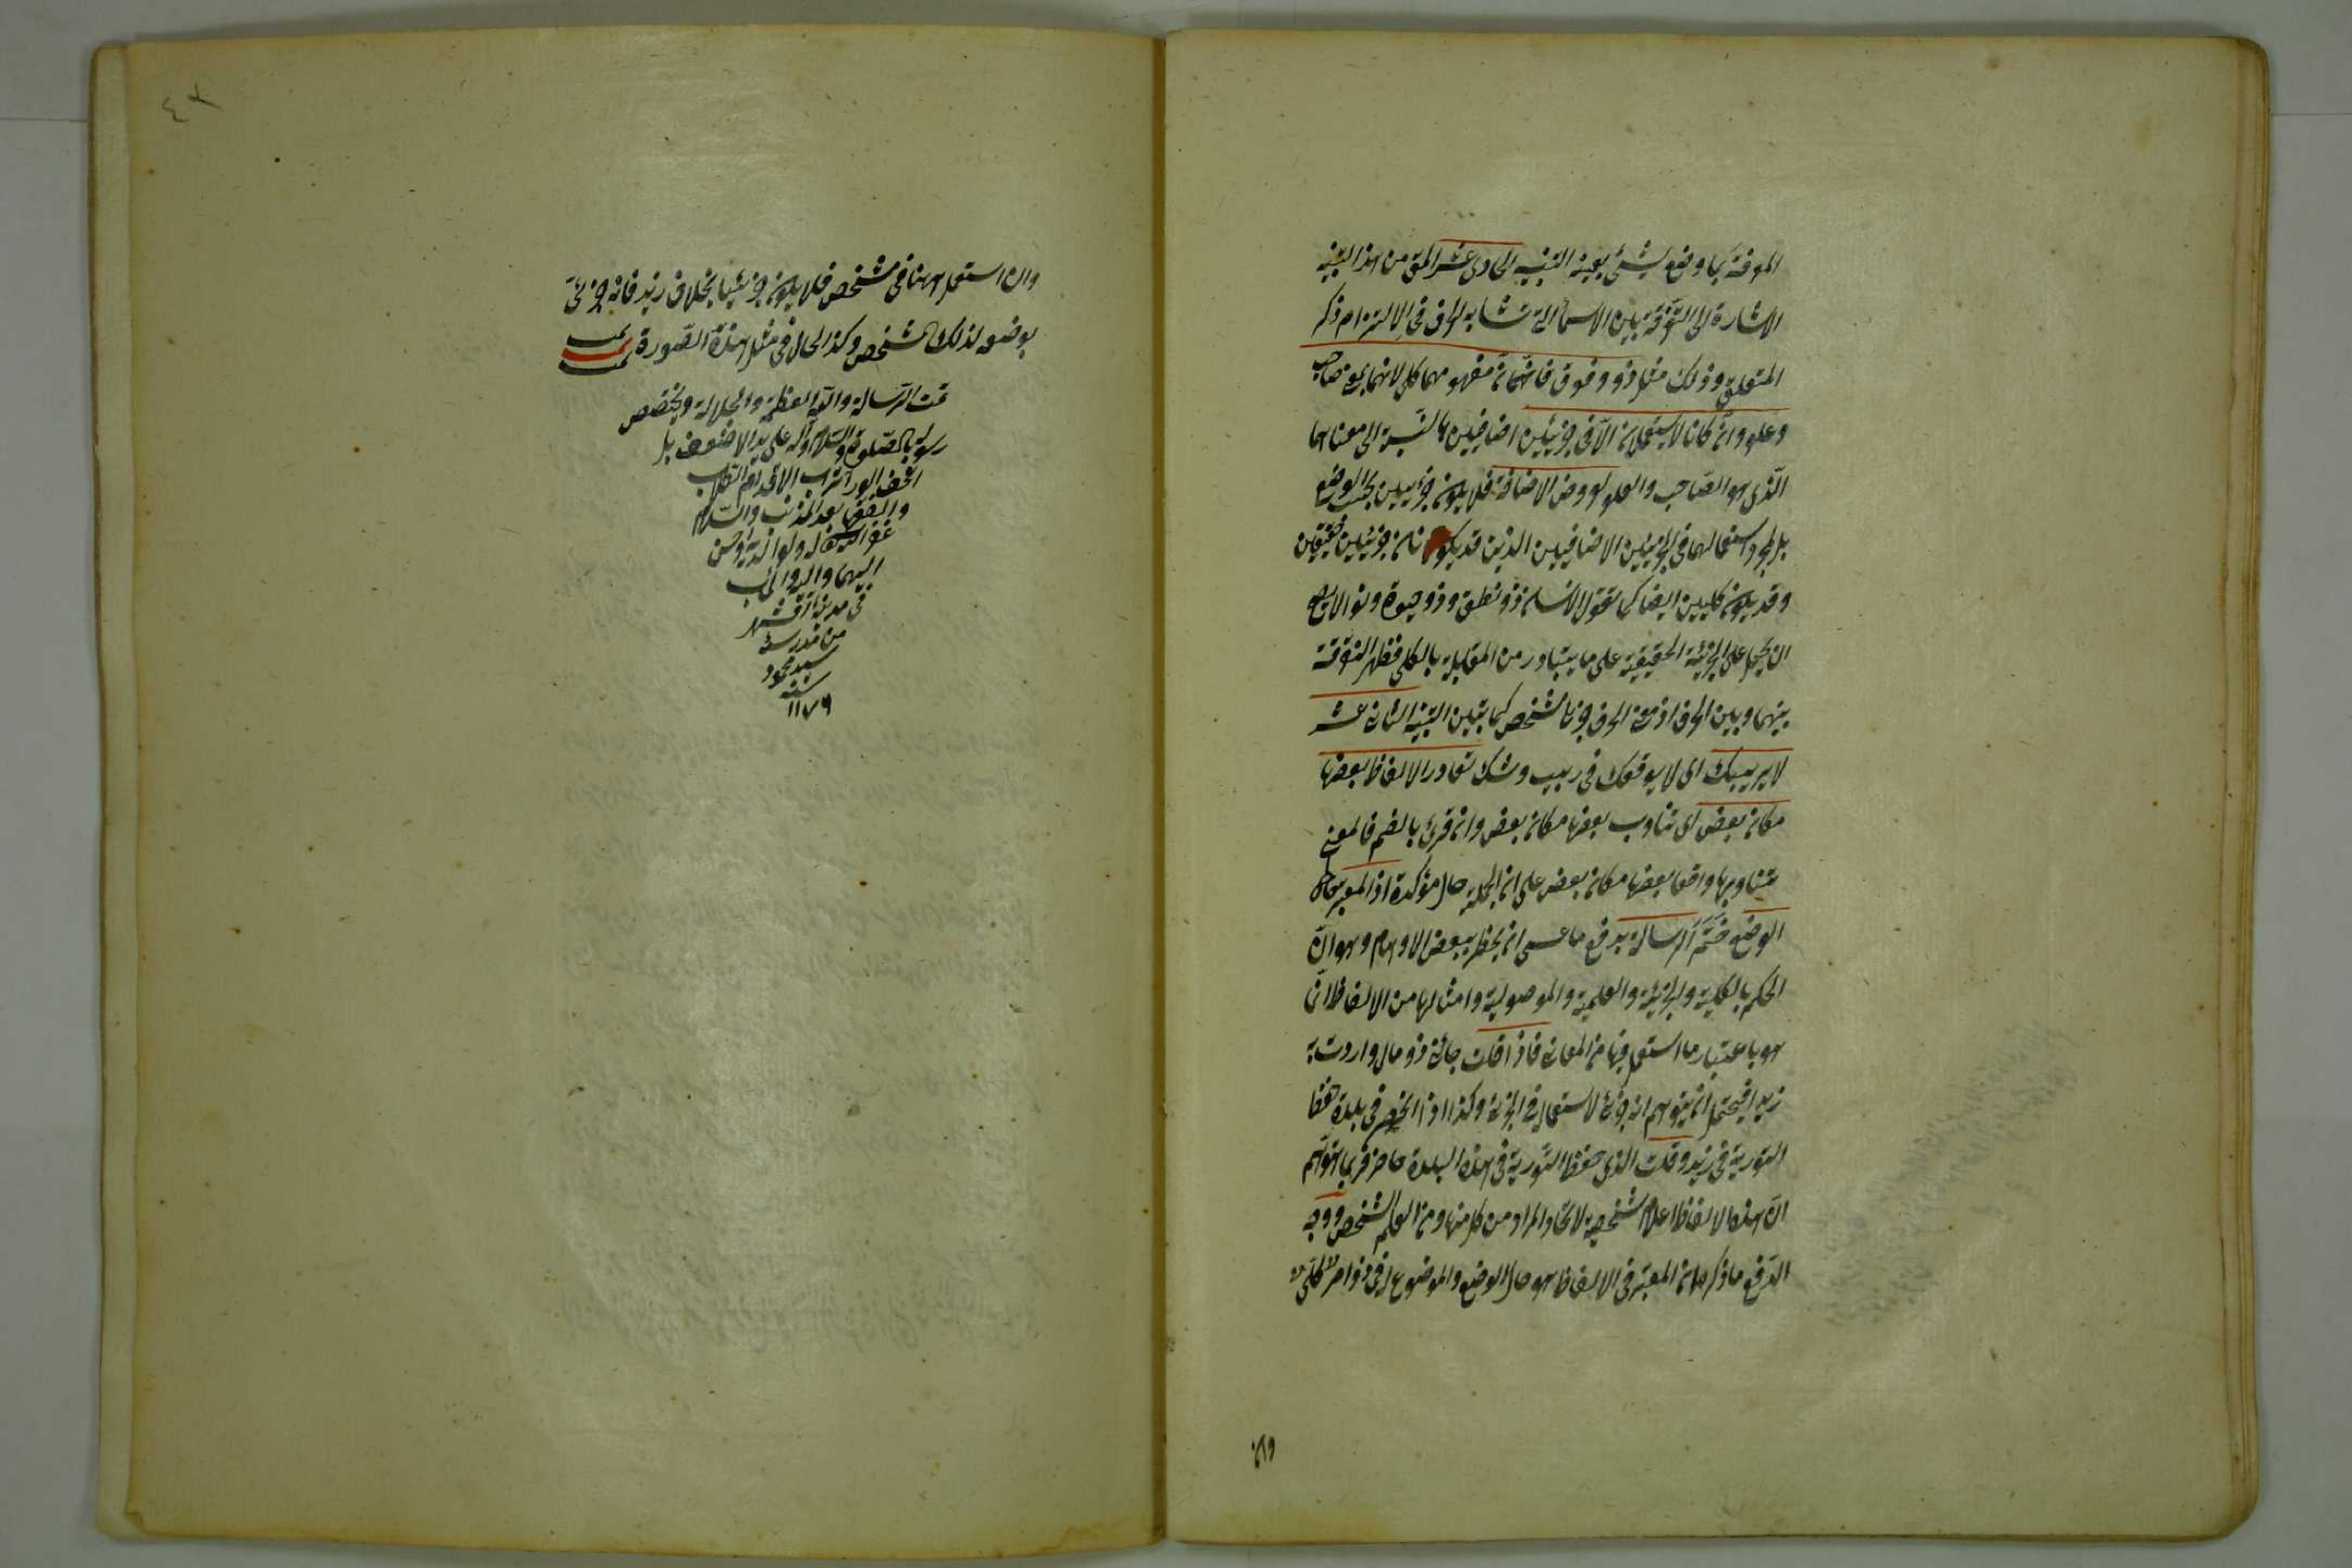 المعرفة بما وضع لشئ بعينه التنبيه الحادى عشر المق من هذا التنبيه
الاشارة الى التفرقة بين الاسماء التى تشابه الحرف فى الالتزام ذكر
المتعلق وذلك مثل ذو وفوق فانهما مفهومهما كلى لانهما بمع صاحب
وعلو وان كانا لا يستعملان الا فى جزئيين اضافيين بالنسبة الى معناهما
الذى هو الصاحب والعلو لعروض الاضافة فلا يكون جزئيين بحسب الوضع
بل لمجرد استعمالهما فى الجزئيين الاضافيين الذين قد يكونان جزئيين حقيقيين
وقد يكون كليين ايضا كما تقول الانسان ذو نطق وذو حيوة
ان يحمل على الجزئية الحقيقية على ما يتبادر من المقابلة بالكلى فظهر التفرقة
بينهما وبين الحرف اذ معنى الحرف جزئى مشخص كما تبين التنبيه الثانى عشر
لا يريبك اى لا يوقعك فى ريب وشك تعاور الالفاظ بعضها
مكان بعض اى تناوب بعضها مكان بعض وان قرئ بالضم فالمعنى
تناوبها واقعا بعضها مكان بعض على ان الجملة حال مؤكدة اذ المعتبر
الوضع ختم الرسالة بدفع ما عسى ان يخطر ببعض الاوهام وهو ان
الحكم بالكلية والجزئية والعلمية والموصولية وامثالها من الالفاظ ان
هو باعتبار ما استعمل فيها من المعانى فاذا قلت جائنى ذو مال واردت به
زيدا فيحتمل ان يتوهم انه جزئى لاستعماله فى الجزئى وكذا اذا انحصر فى بلدة حفظ
التورية فى زيد وقلت الذى حفظ التورية فى هذه البلدة حاضر فربما يتوهم
ان هذه الالفاظ اعلام شخصية لاتحاد المراد من كل منها ومن العلم الشخص ووجه
الدفع ما ذكر من ان المعتبر فى الالفاظ هو حال الوضع والموضوع له فى ذو امر كلى
وان
وان استعمل ههنا فى مشخص فلا يكون جزئيا بخلاف زيد فانه جزئى
بوضعه لذلك المشخص وكذا الحال فى مثل هذه الصورة تمت
تمت الرسالة والله العظمة والجلالة ويختص
رسوله بالصلوة والسلام وآله على يد الاضعف بل
احقر الورى تراب الاقدام الطلاب
والفقها بعد المذنب والسلام
غفر الله له ولوالديه واحسن
اليهما واليه
فى مدينة آقشهر
من مدرسة
سيد محمود
سنه
١١٧٩